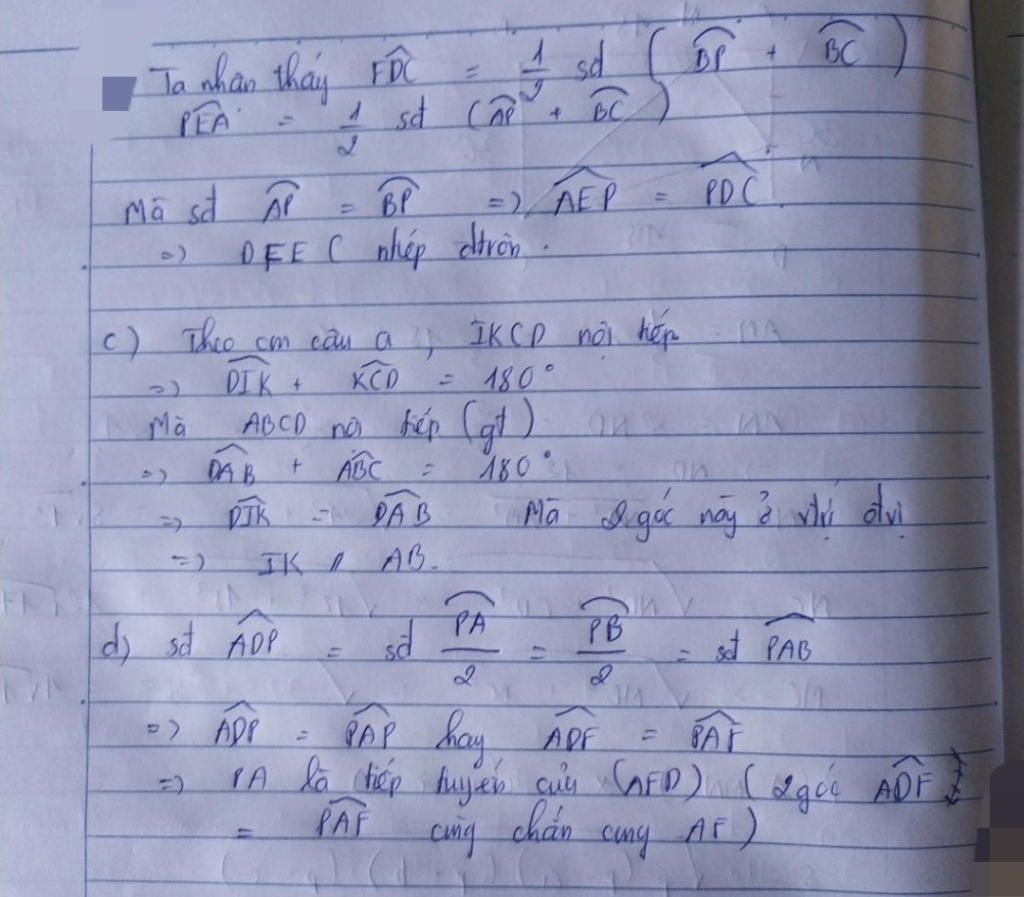 Ta nhận thấy \widehat{FDC} = \frac{1}{2} sđ (\overset{\frown}{BP} + \overset{\frown}{BC})
\widehat{PEA} = \frac{1}{2} sđ (\overset{\frown}{AP} + \overset{\frown}{BC})
Mà sđ \overset{\frown}{AP} = \overset{\frown}{BP} => \widehat{AEP} = \widehat{PDC}
=> DFEC nhép đtròn.
c) Theo cm câu a, IKCD nội tiếp
=> \widehat{DIK} + \widehat{KCD} = 180°
Mà ABCD nội tiếp (gt)
=> \widehat{DAB} + \widehat{ABC} = 180°
=> \widehat{DIK} = \widehat{DAB} Mà 2 góc này ở vtrí đvị
=> IK // AB.
d) sđ \widehat{ADP} = sđ \frac{\overset{\frown}{PA}}{2} = \frac{\overset{\frown}{PB}}{2} = sđ \widehat{PAB}
=> \widehat{ADP} = \widehat{PAP} hay \widehat{ADF} = \widehat{PAF}
=> PA là tiếp tuyến của (AFD) (2 góc \widehat{ADF}
= \widehat{PAF} cùng chắn cung AF)